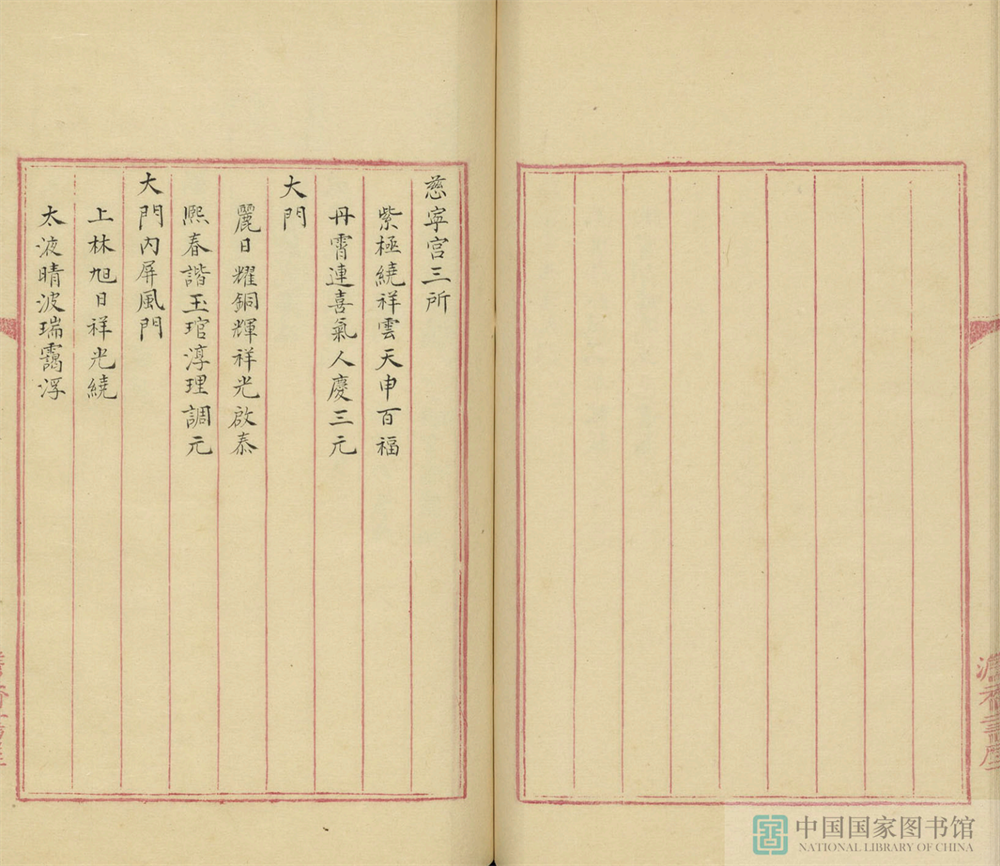 慈寧宮三所
紫極繞祥雲天申百福
丹霄連喜氣人慶三元
大門
麗日耀銅輝祥光啟泰
熙春諧玉琯淳理調元
大門內屏風門
上林旭日祥光繞
太液晴波瑞靄浮
中国国家图书馆
NATIONAL LIBRARY OF CHINA